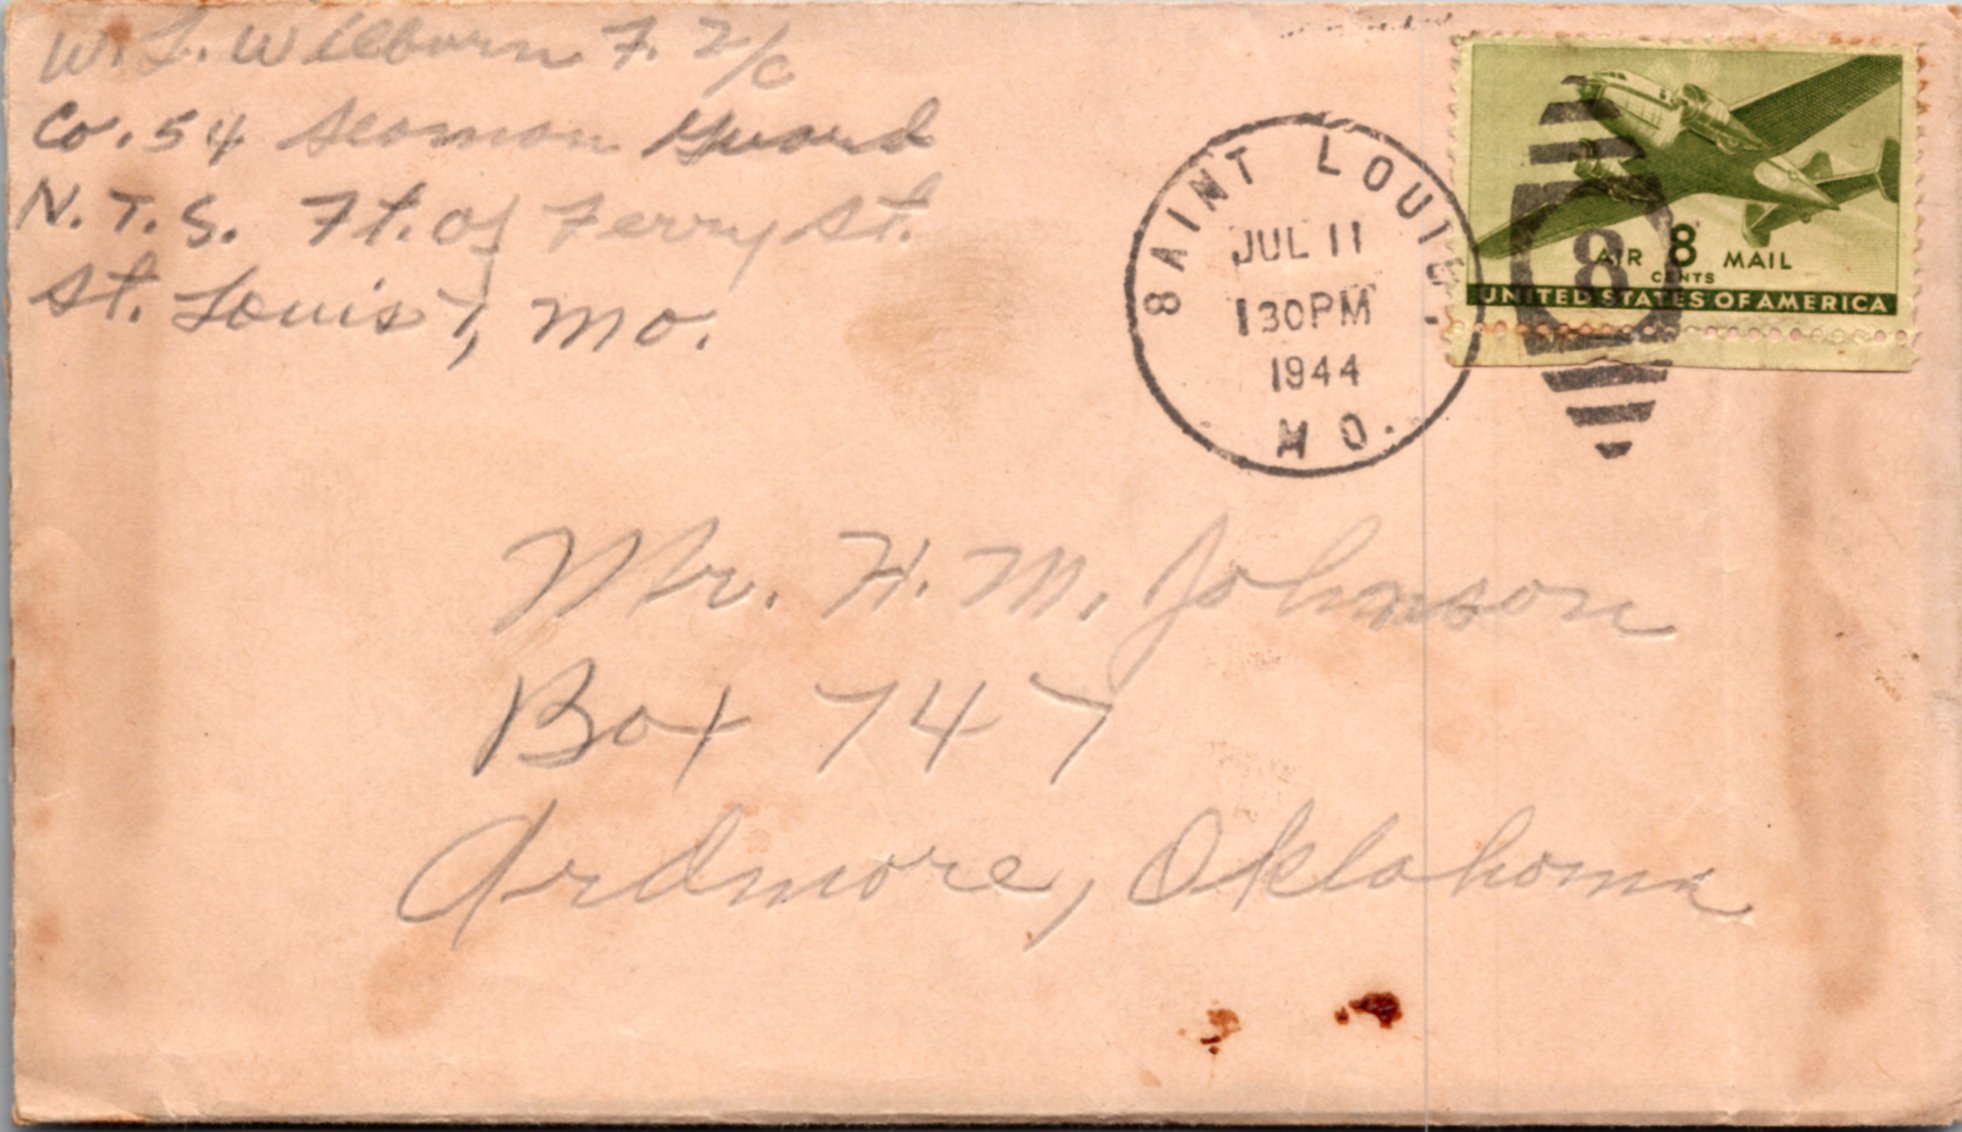 W. L. Wilburn F. 2/c
Co. 54 Seaman Guard
N. T. S. Ft. of Ferry St.
St. Louis 7, Mo.
SAINT LOUIS,
JUL 11
1 30 PM
1944
MO.
8
AIR 8 MAIL
CENTS
UNITED STATES OF AMERICA
Mr. H. M. Johnson
Box 747
Ardmore, Oklahoma